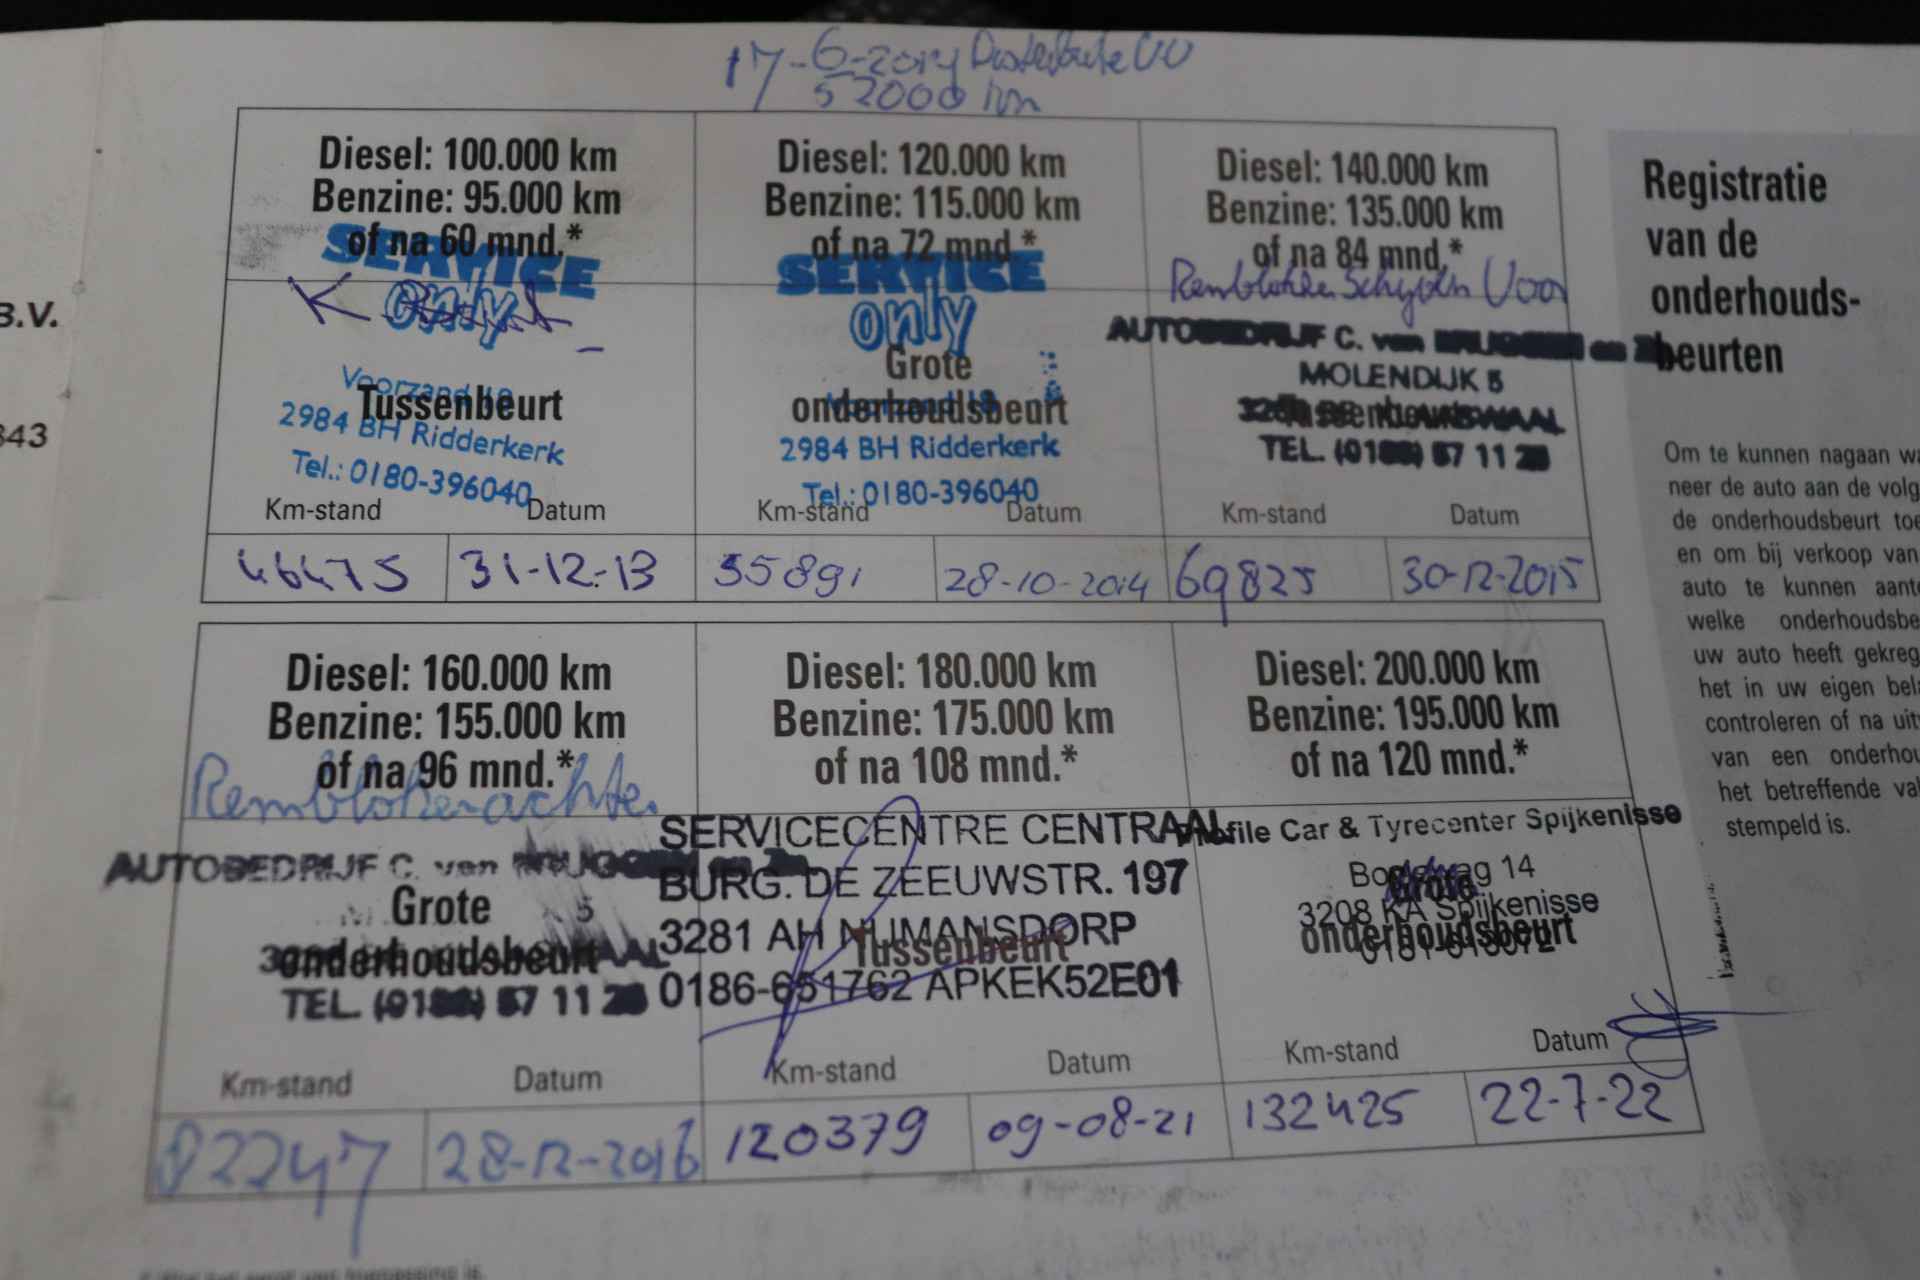 17-6-2014 Distributie VV
52000 km
Diesel: 100.000 km
Benzine: 95.000 km
of na 60 mnd.*
SERVICE
only
Voorzand
Tussenbeurt
2984 BH Ridderkerk
Tel.: 0180-396040
Km-stand Datum
46475 31-12-13
Diesel: 120.000 km
Benzine: 115.000 km
of na 72 mnd.*
SERVICE
only
Grote
onderhoudsbeurt
2984 BH Ridderkerk
Tel.: 0180-396040
Km-stand Datum
55891 28-10-2014
Diesel: 140.000 km
Benzine: 135.000 km
of na 84 mnd.*
Remblokken Schijven Voor
AUTOBEDRIJF C. van en
MOLENDIJK 5
Tussenbeurt
TEL. 57 11
Km-stand Datum
69825 30-12-2015
Diesel: 160.000 km
Benzine: 155.000 km
of na 96 mnd.*
Remblokken achter
AUTOBEDRIJF C. van en
Grote 5
onderhoudsbeurt
TEL. 57 11
Km-stand Datum
82247 28-12-2016
Diesel: 180.000 km
Benzine: 175.000 km
of na 108 mnd.*
SERVICECENTRE CENTRAAL
BURG. DE ZEEUWSTR. 197
3281 AH NUMANSDORP
Tussenbeurt
0186-651762 APKEK52E01
Km-stand Datum
120379 09-08-21
Diesel: 200.000 km
Benzine: 195.000 km
of na 120 mnd.*
Profile Car & Tyrecenter Spijkenisse
14
Grote
3208 KA Spijkenisse
onderhoudsbeurt
Km-stand Datum
132425 22-7-22
Registratie
van de
onderhouds-
beurten
Om te kunnen nagaan
neer de auto aan de volg
de onderhoudsbeurt toe
en om bij verkoop van
auto te kunnen aant
welke onderhoudsbe
uw auto heeft gekreg
het in uw eigen bel
controleren of na uit
van een onderhou
het betreffende va
stempeld is.
B.V.
343